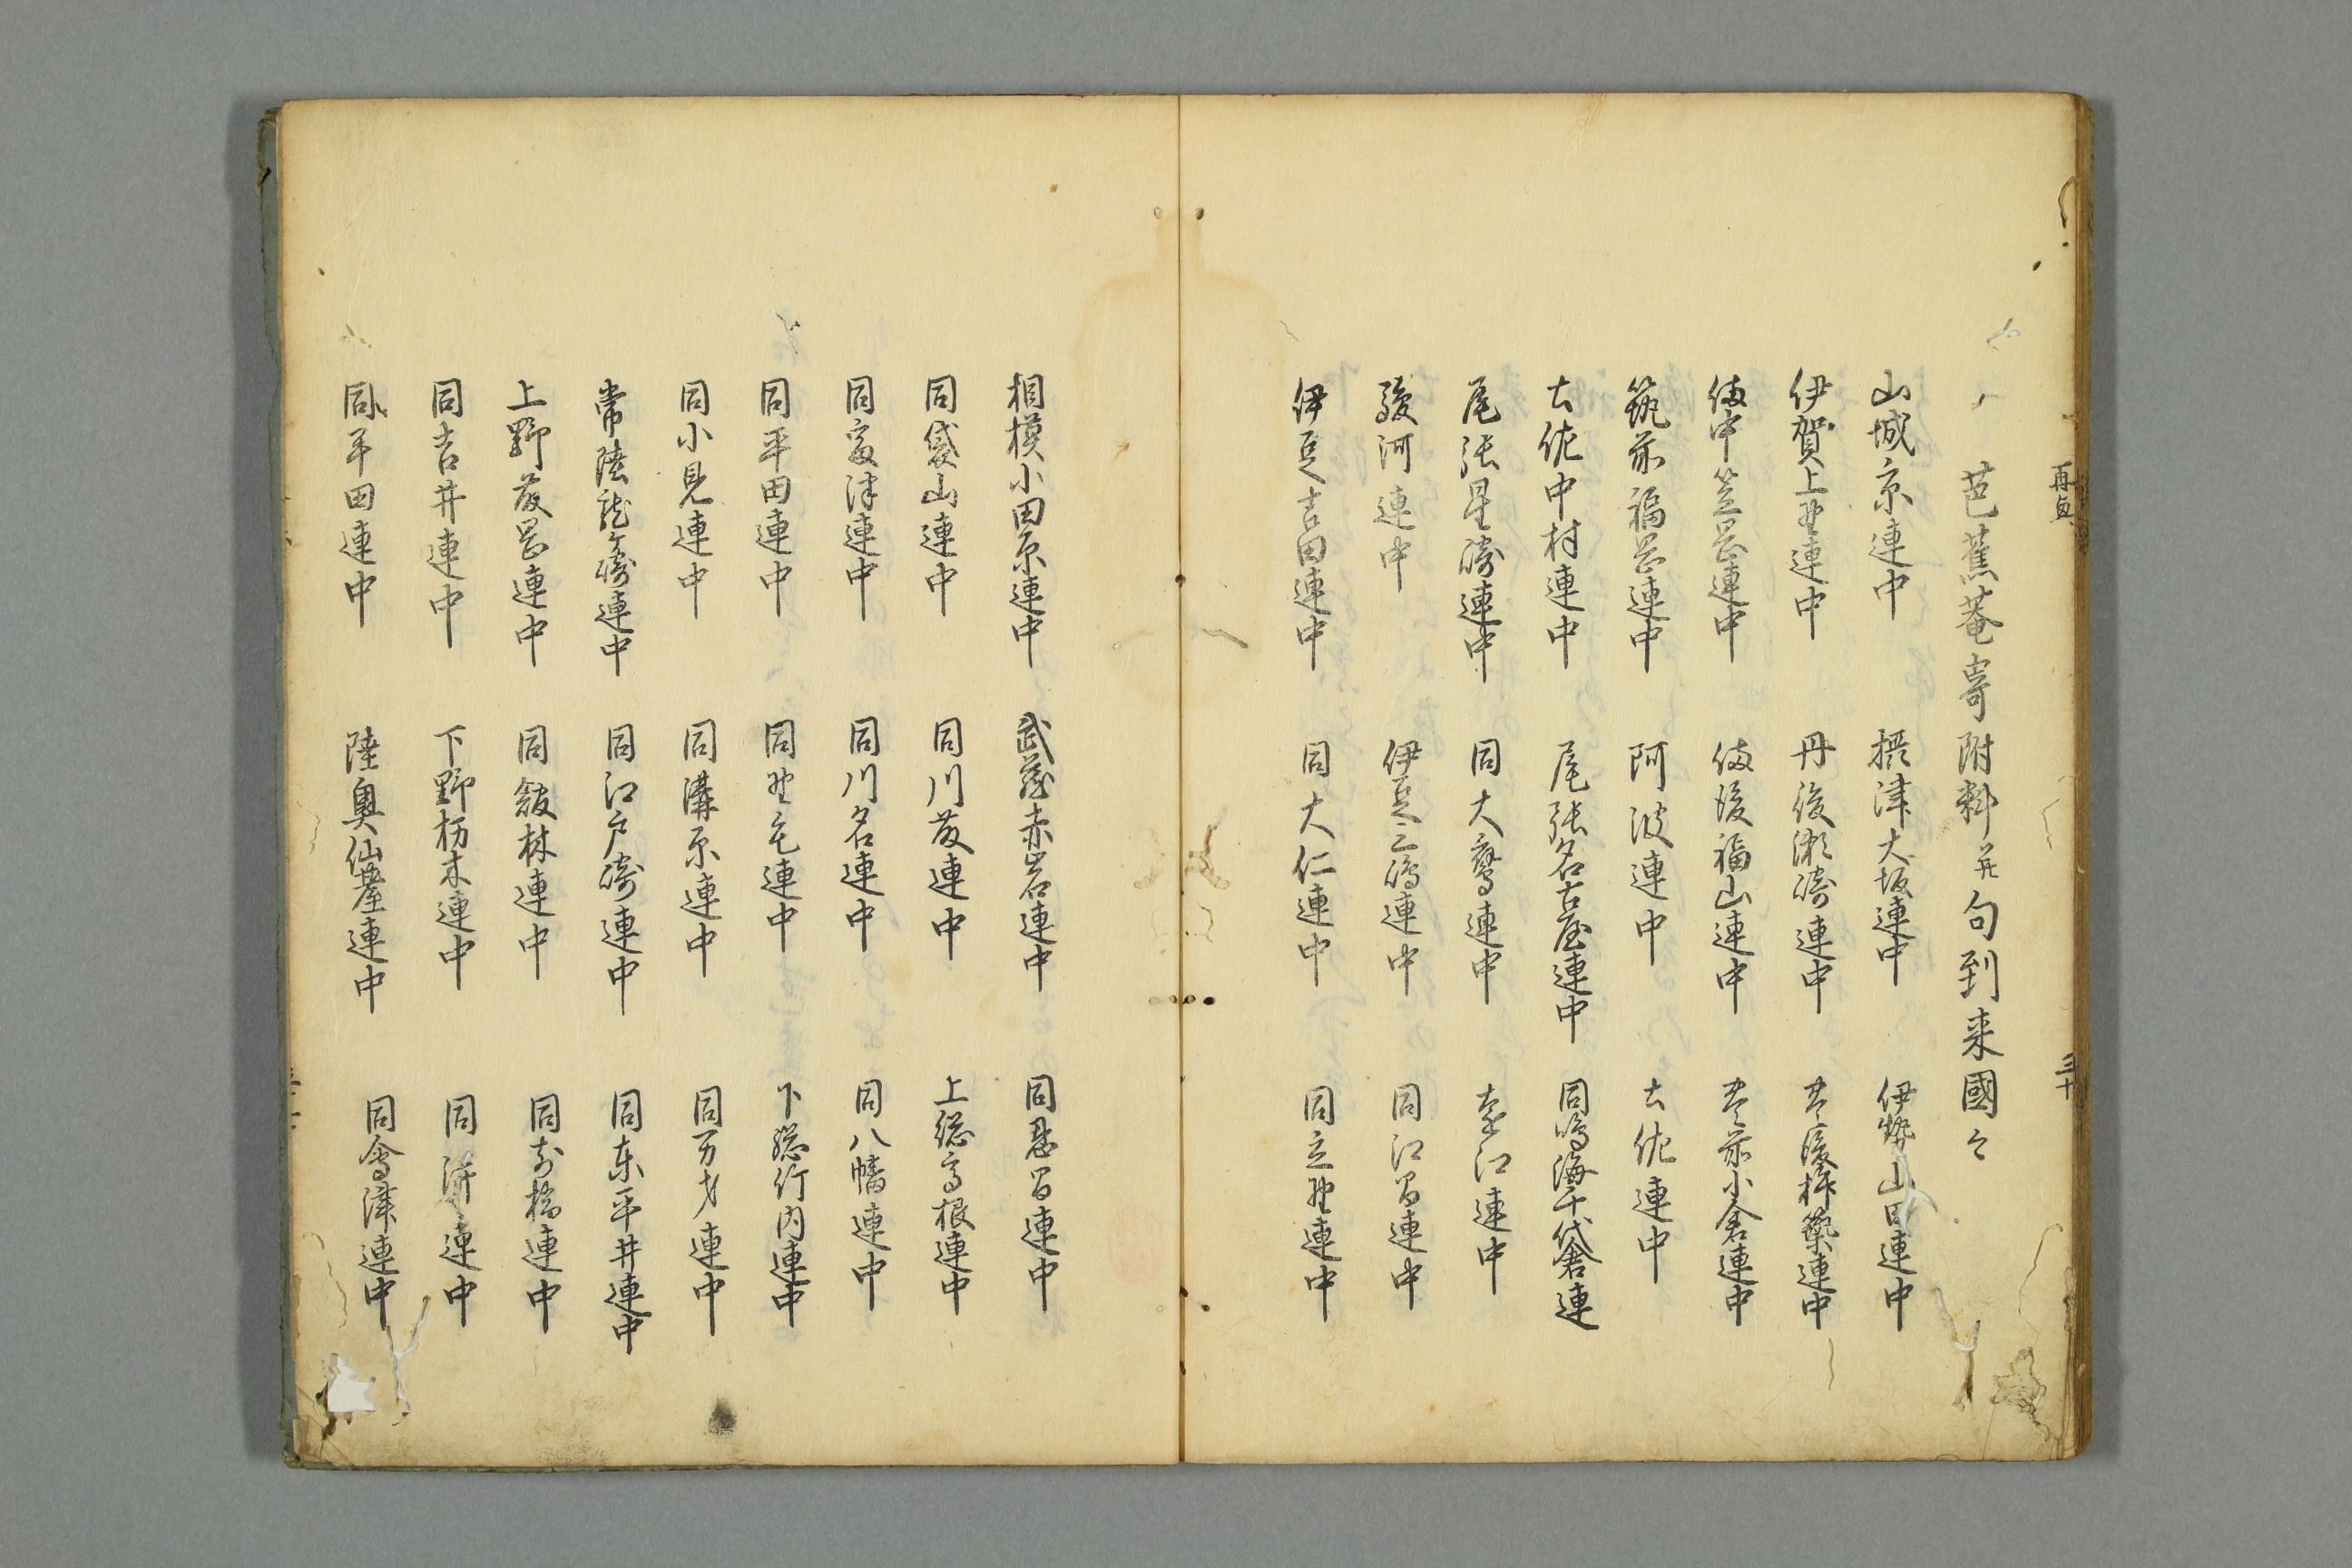 芭蕉菴寄附料并句到来國々
山城京連中 摂津大坂連中 伊勢山田連中
伊賀上野連中 丹後瀬崎連中 豊後杵築連中
備中笠岡連中 備後福山連中 豊前小倉連中
筑前福岡連中 阿波連中 土佐連中
土佐中村連中 尾張名古屋連中 同鳴海千代倉連
尾張星崎連中 同大高連中 遠江連中
駿河連中 伊豆三嶋連中 同江間連中
伊豆吉田連中 同大仁連中 同立野連中
再貞
三十
相模小田原連中 武蔵赤岩連中 同忍岡連中
同袋山連中 同川藤連中 上総高根連中
同富津連中 同川名連中 同八幡連中
同平田連中 同野毛連中 下総行内連中
同小見連中 同溝原連中 同万才連中
常陸龍ヶ崎連中 同江戸崎連中 同東平井連中
上野藤岡連中 同舘林連中 同前橋連中
同吉井連中 下野栃木連中 同 連中
同平田連中 陸奥仙臺連中 同會津連中